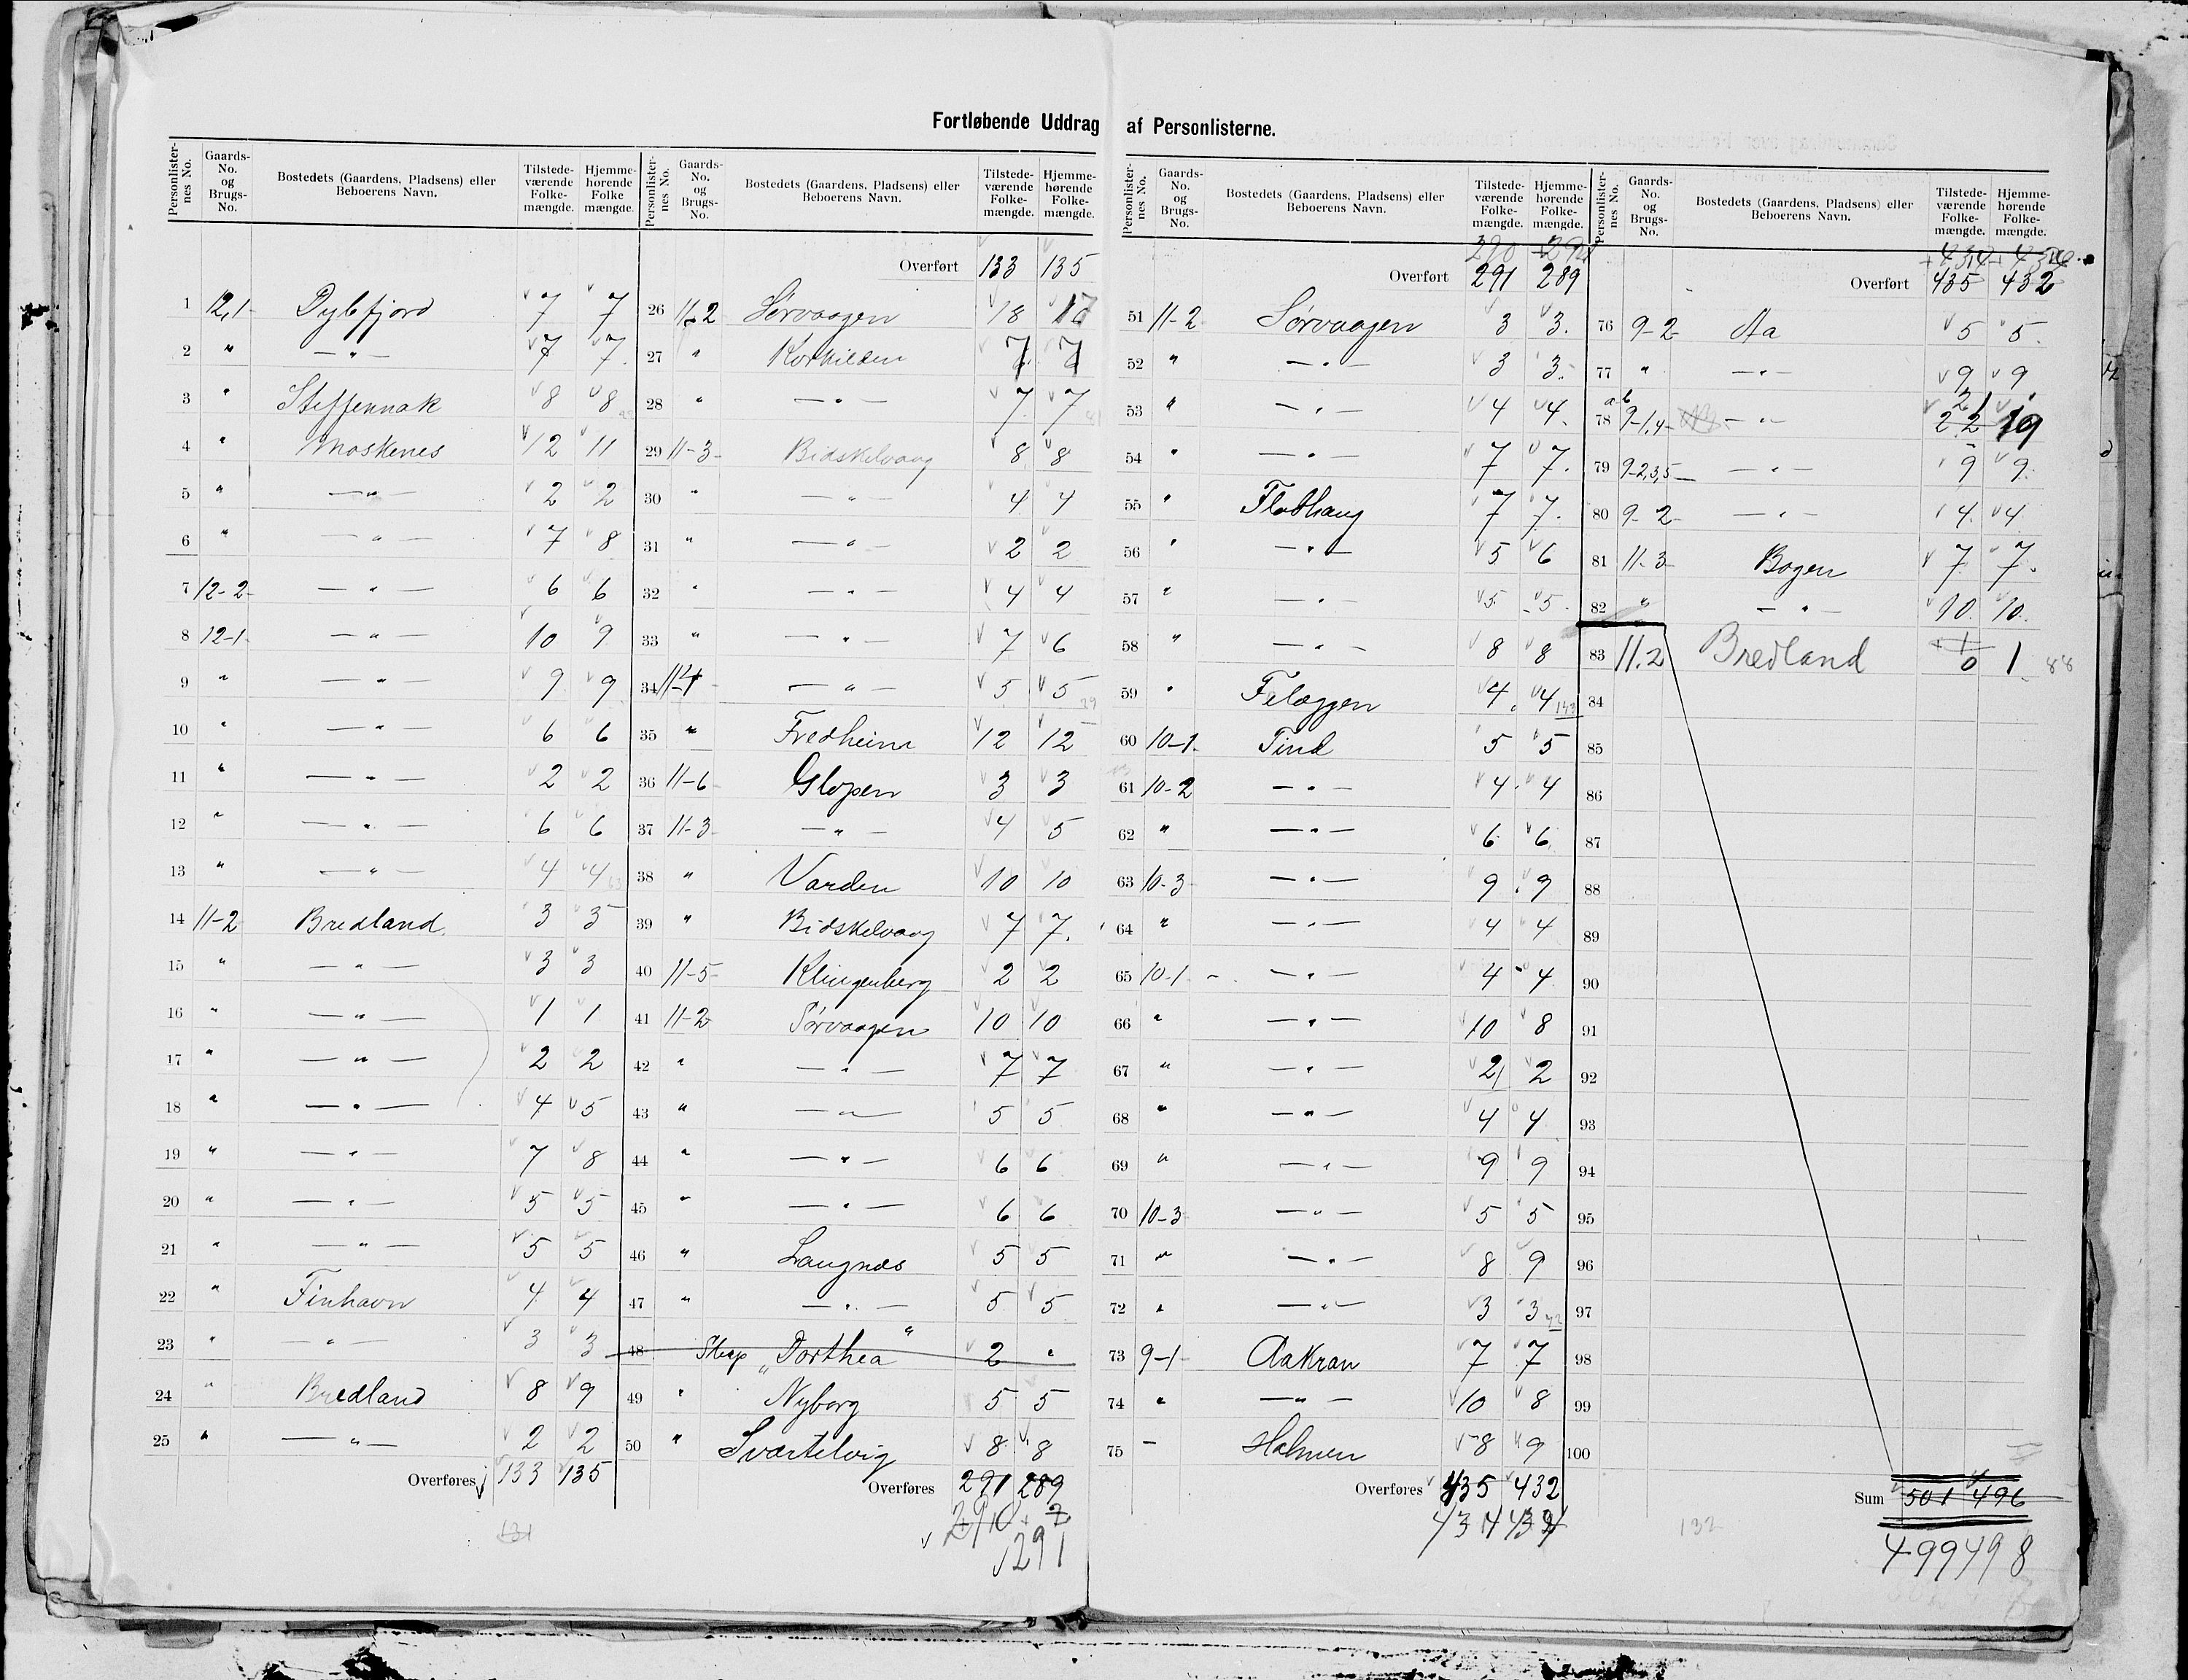 Fortløbende Uddrag af Personlisterne.
Personlisternes No. | Gaards-No. og Brugs-No. | Bostedets (Gaardens, Pladsens) eller Beboerens Navn. | Tilstedeværende Folkemængde. | Hjemmehørende Folkemængde.
1 12,1 Dybfjord 7 7
2 " — " — 7 7
3 " Steffennak 8 8
4 " Moskenes 12 11
5 " — " — 2 2
6 " — " — 7 8
7 12-2 — " — 6 6
8 12-1 — " — 10 9
9 " — " — 9 9
10 " — " — 6 6
11 " — " — 2 2
12 " — " — 6 6
13 " — " — 4 4
14 11-2 Bredland 3 3
15 " — " — 3 3
16 " — " — 1 1
17 " — " — 2 2
18 " — " — 4 5
19 " — " — 7 8
20 " — " — 5 5
21 " — " — 5 5
22 " Finhavn 4 4
23 " — " — 3 3
24 " Bredland 8 9
25 " — " — 2 2
Overføres 133 135
131
Personlisternes No. | Gaards-No. og Brugs-No. | Bostedets (Gaardens, Pladsens) eller Beboerens Navn. | Tilstedeværende Folkemængde. | Hjemmehørende Folkemængde.
Overført 133 135
26 11-2 Sørvaagen 18 17
27 " Korhilden 7 7
28 " — " — 7 7
29 11-3 Bidskelvaag 8 8
30 " — " — 4 4
31 " — " — 2 2
32 " — " — 4 4
33 " — " — 7 6
34 11-4 — " — 5 5
35 " Fredheim 12 12
36 11-6 Glopen 3 3
37 11-3 — " — 4 5
38 " Varden 10 10
39 " Bidskelvaag 7 7
40 11-5 Klingenberg 2 2
41 11-2 Sørvaagen 10 10
42 " — " — 7 7
43 " — " — 5 5
44 " — " — 6 6
45 " — " — 6 6
46 " Langnes 5 5
47 " — " — 5 5
48 Skøp "Dorthea" 2 "
49 " Nyborg 5 5
50 " Sværtelvig 8 8
Overføres 291 289
290 + 2
291
Personlisternes No. | Gaards-No. og Brugs-No. | Bostedets (Gaardens, Pladsens) eller Beboerens Navn. | Tilstedeværende Folkemængde. | Hjemmehørende Folkemængde.
290 +291
Overført 291 289
51 11-2 Sørvaagen 3 3
52 " — " — 3 3
53 " — " — 4 4
54 " — " — 7 7
55 " Flathaug 7 7
56 " — " — 5 6
57 " — " — 5 5
58 " — " — 8 8
59 " Felæggen 4 4
60 10-1 Tind 5 5
61 10-2 — " — 4 4
62 " — " — 6 6
63 10-3 — " — 9 9
64 " — " — 4 4
65 10-1 — " — 4 4
66 " — " — 10 8
67 " — " — 2 2
68 " — " — 4 4
69 " — " — 9 9
70 10-3 — " — 5 5
71 " — " — 8 9
72 " — " — 3 3
73 9-1 Aakran 7 7
74 " — " — 10 8
75 — Holmen 8 9
Overføres 435 432
434 434
Personlisternes No. | Gaards-No. og Brugs-No. | Bostedets (Gaardens, Pladsens) eller Beboerens Navn. | Tilstedeværende Folkemængde. | Hjemmehørende Folkemængde.
+434 +434
Overført 435 432
76 9-2 Aa 5 5
77 " — " — 9 9
21
78 a-b 9-1,4 — " — 22 19
79 9-2,3,5 — " — 9 9
80 9-2 — " — 4 4
81 11-3 Bogen 7 7
82 " — " — 10 10
83 11.2 Bredland 0 1 88
84
85
86
87
88
89
90
91
92
93
94
95
96
97
98
99
100
Sum 501 496
132
499 498